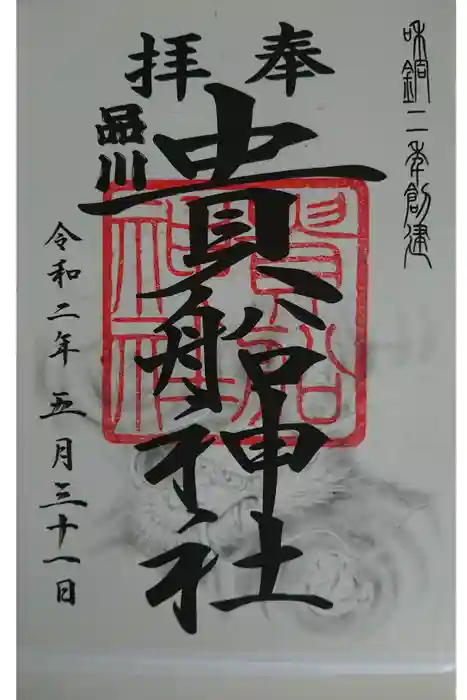 和銅二年創建
奉拝
貴船神社
貴船
神社
品川
令和二年五月三十一日